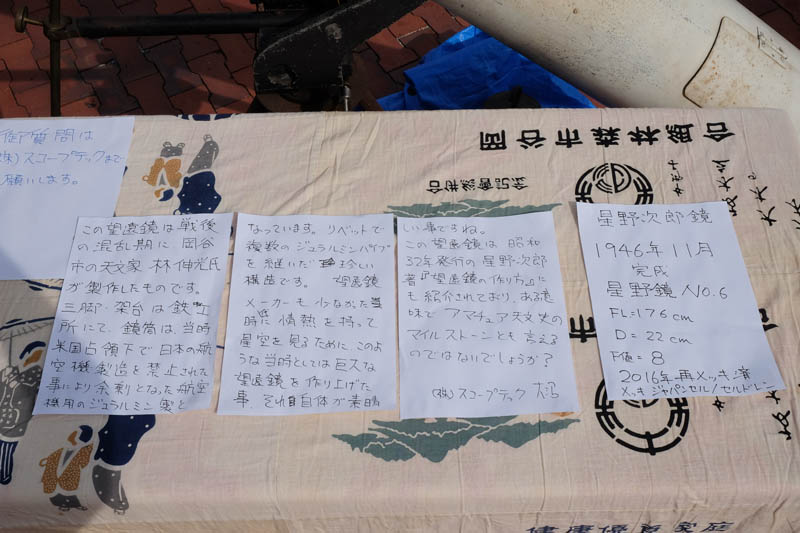 御質問は
(株)スコープテックまで
願いします。
この望遠鏡は戦後
の混乱期に 岡谷
市の天文家 林伸光氏
が製作したものです。
三脚・架台は鉄工
所にて、鏡筒は、当時
米国占領下で日本の航
空機製造を禁止された
事により余剰となった航空
機用のジュラルミン製と
なっています。リベットで
複数のジュラルミンパイプ
を継いだ 珍しい
構造です。 望遠鏡
メーカーも少なかった当
時に情熱を持って
星空を見るために、このよ
うな当時としては巨大な
望遠鏡を作り上げた
事、それ自体が素晴
しい事ですね。
この望遠鏡は 昭和
32年発行の星野次郎
著『望遠鏡の作り方』に
も紹介されており、ある意
味で アマチュア天文史の
マイルストーンとも言える
のではないでしょうか?
(株)スコープテック
星野次郎鏡
1946年11月
完成
星野鏡 No.6
FL=176cm
D=22cm
F値=8
2016年再メッキ済
メッキジャパンセル/セルドレン
岡谷市森林組合
健康優良家庭